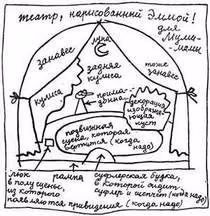 театр, нарисованный Эммой!
для
Муми-
мамы
занавес
луна
задняя
кулиса
тоже
занавес
кулиса
прима-
донна
декорация,
изображающая
куст
подвижная
сцена, которая
вертится (когда
надо)
люк
в полу сцены,
из которого
появляются привидения (когда надо)
рампа
суфлерская будка,
в которой сидит
суфлер и шепчет (когда
надо)